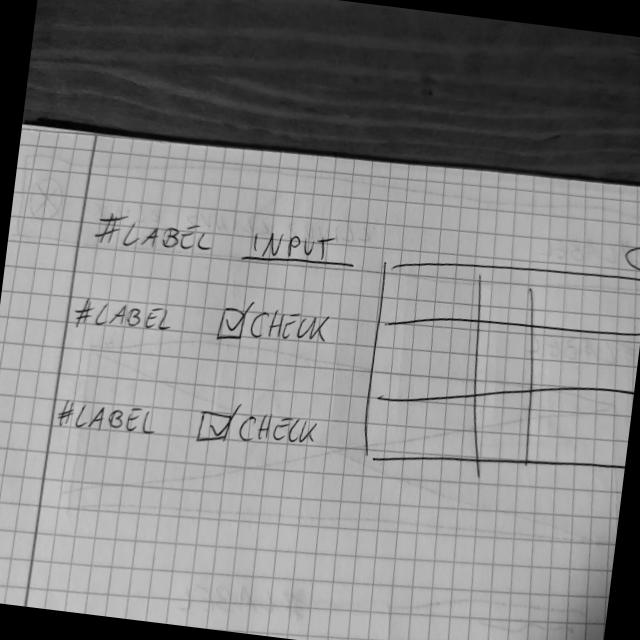 #LABEL INPUT
#LABEL CHECK
#LABEL CHECK